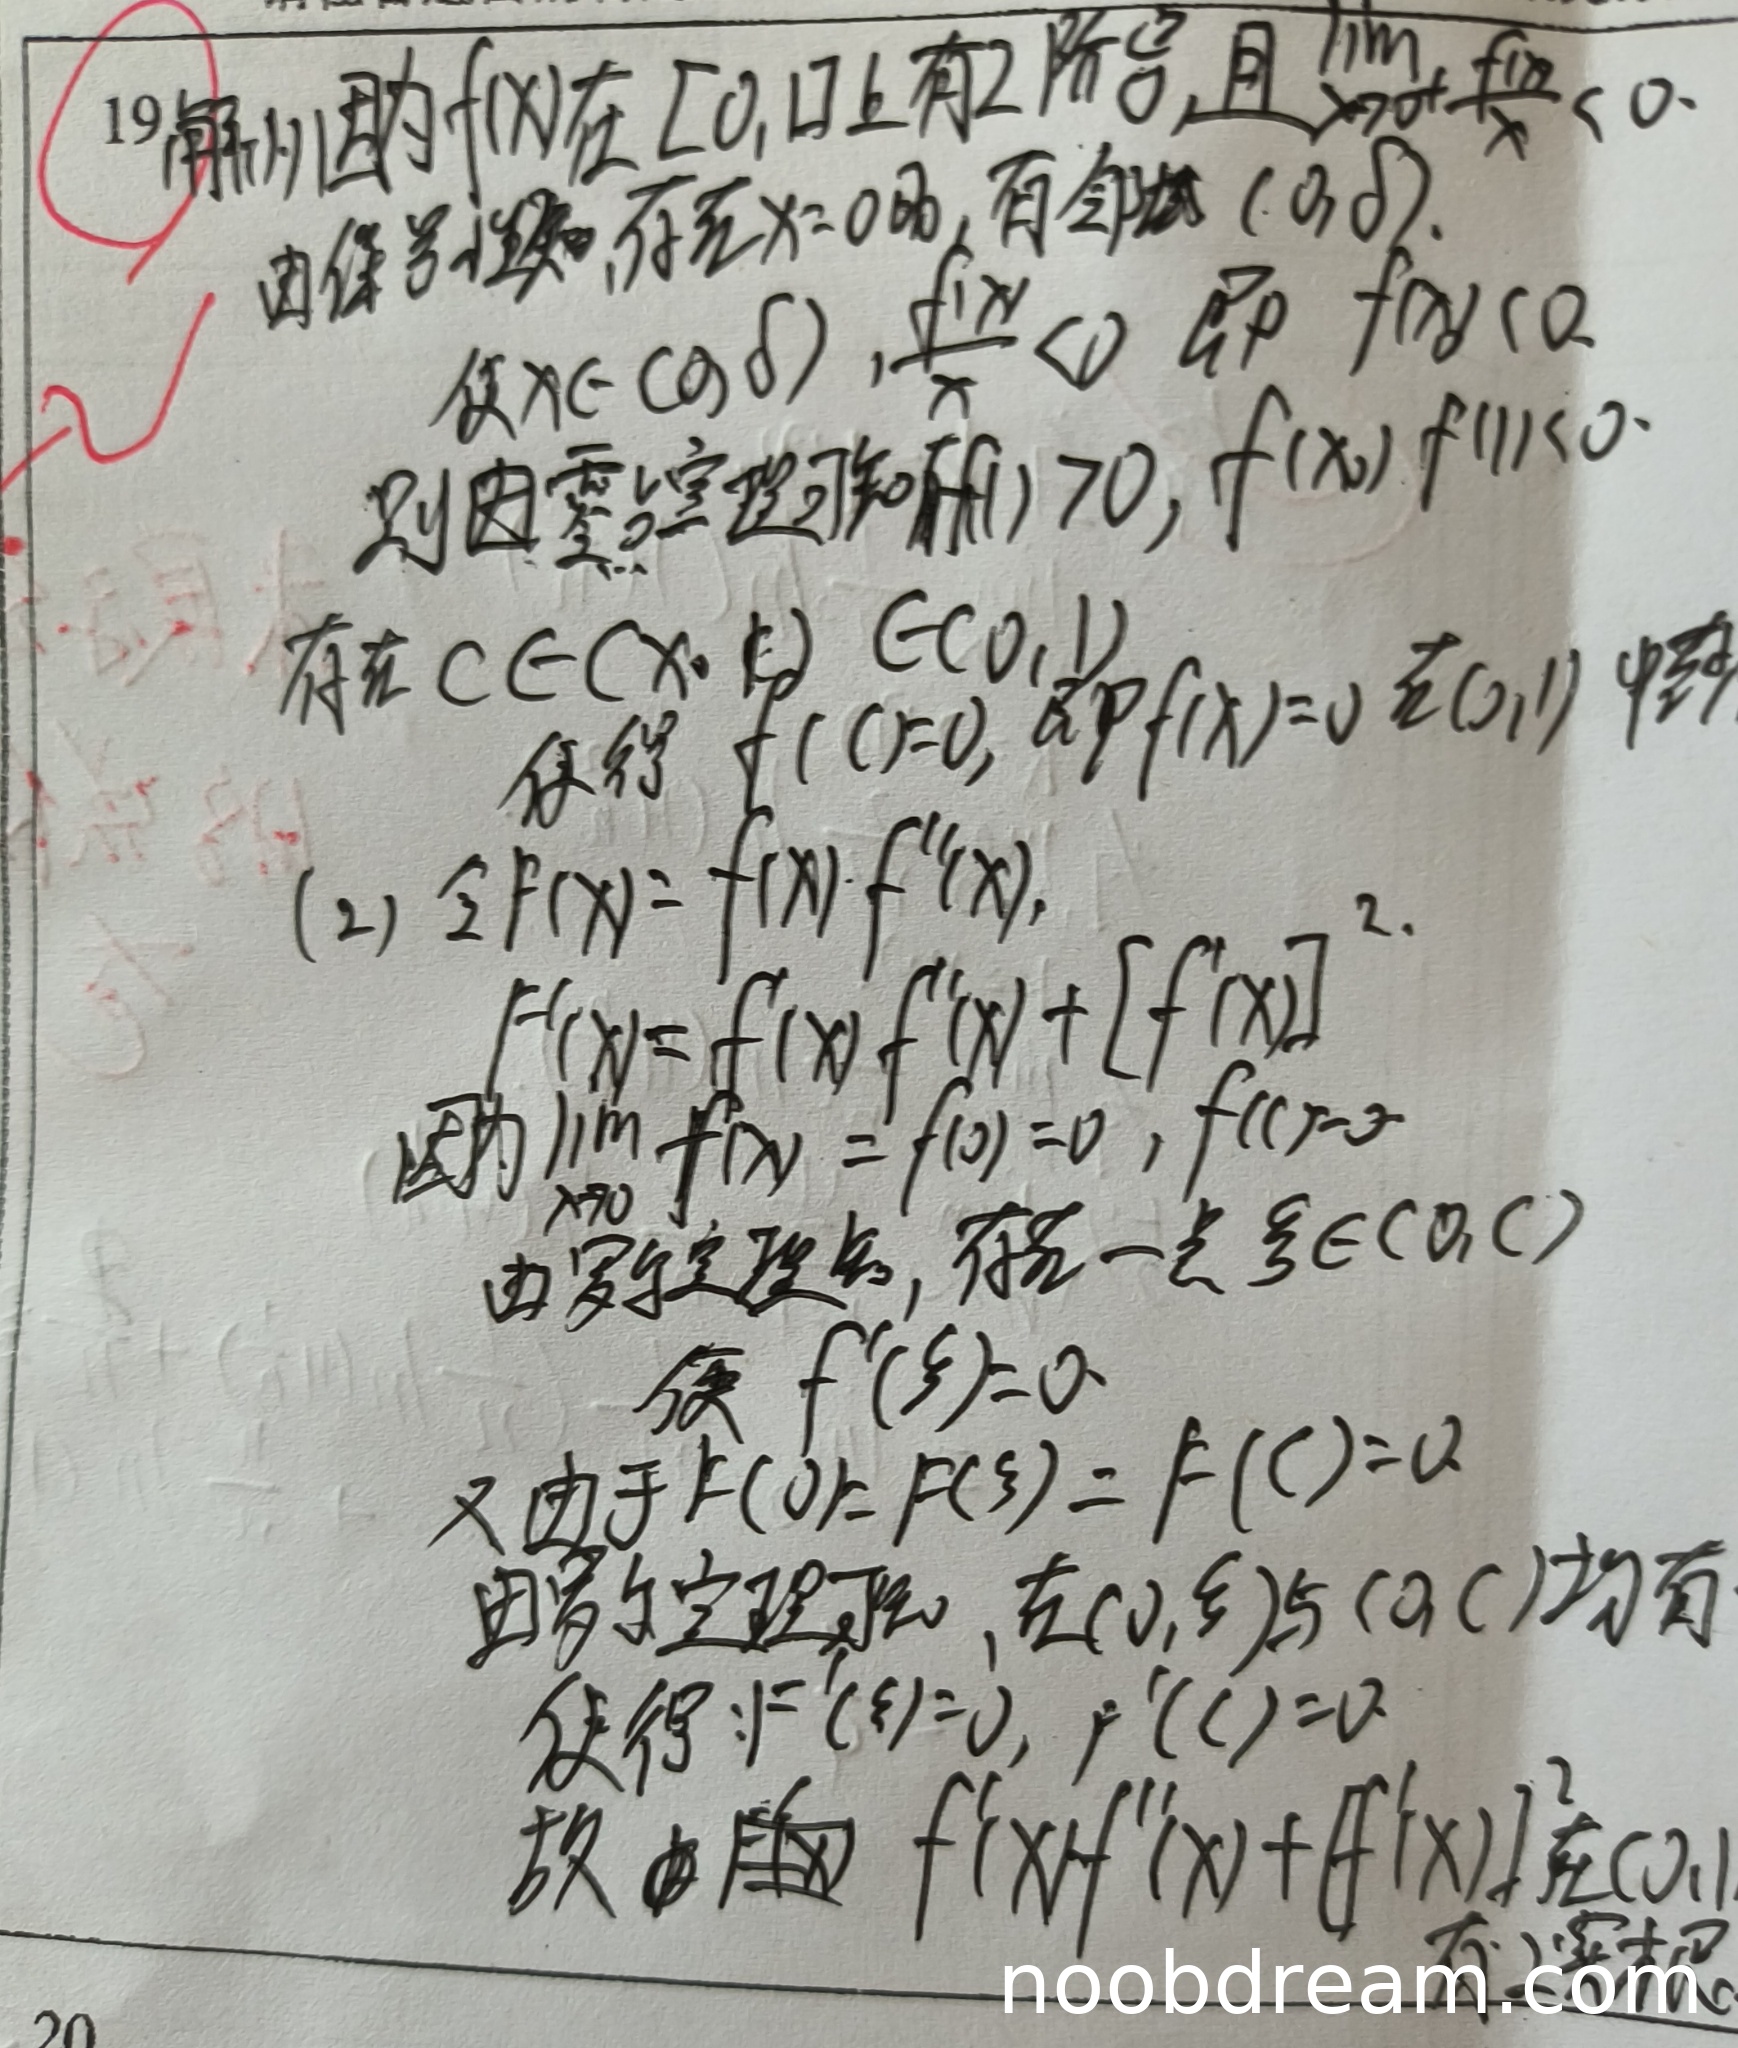 19 解(1) 因为f(x)在[0,1]上有2阶导,且 lim x→0+ f(x)/x < 0.
由保号性知,存在x=0的,有邻域 (0,δ).
使x∈(0,δ), f(x)/x <0 即 f(x)<0.
则因零点定理可知f(1)>0, f(x₀)f(1)<0.
存在 c∈(x₀,1) ∈(0,1)
使得 f(c)=0, 即f(x)=0在(0,1)中
(2) 令F(x)= f(x)·f''(x).
F'(x)= f'(x)f''(x)+[f'(x)]².
因为 lim x→0 f(x) = f(0)=0, f(c)=0
由罗尔定理知,存在一点ξ∈(0,c)
使 f'(ξ)=0.
又由于F(0)=F(ξ)=F(c)=0.
由罗尔定理可知,在(0,ξ)与(0,c)均有
使得:F'(ξ)=0, F'(c)=0.
故由 f'(x)f''(x)+[f'(x)]²在(0,1)
有2实根.
noobdream.com
20